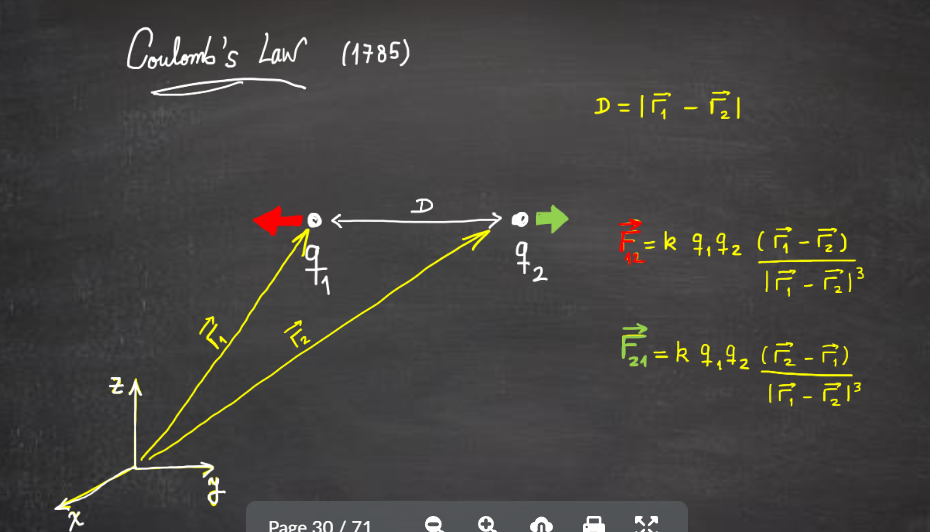 Coulomb's Law (1785)
D = |r⃗₁ − r⃗₂|
D
q₁
q₂
F⃗₁₂ = k q₁q₂ (r⃗₁ − r⃗₂) / |r⃗₁ − r⃗₂|³
r⃗₁
r⃗₂
F⃗₂₁ = k q₁q₂ (r⃗₂ − r⃗₁) / |r⃗₁ − r⃗₂|³
z
y
x
Page 30 / 71